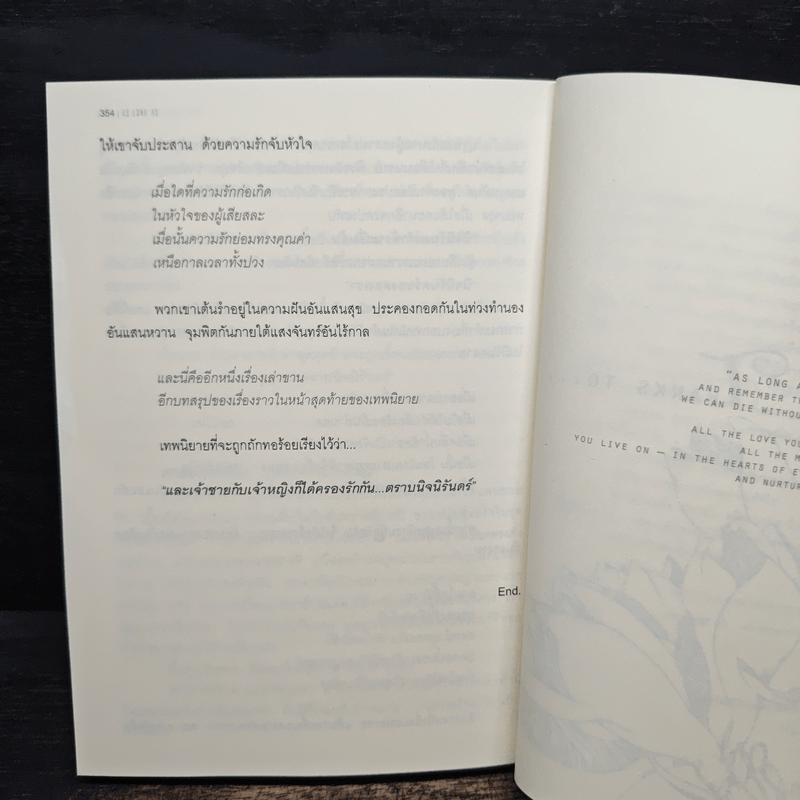 354
ให้เขาจับประสาน ด้วยความรักจับหัวใจ
เมื่อใดที่ความรักก่อเกิด
ในหัวใจของผู้เสียสละ
เมื่อนั้นความรักย่อมทรงคุณค่า
เหนือกาลเวลาทั้งปวง
พวกเขาเต้นรำอยู่ในความฝันอันแสนสุข ประคองกอดกันในท่วงทำนอง
อันแสนหวาน จุมพิตกันภายใต้แสงจันทร์อันไร้กาล
และนี่คืออีกหนึ่งเรื่องเล่าขาน
อีกบทสรุปของเรื่องราวในหน้าสุดท้ายของเทพนิยาย
เทพนิยายที่จะถูกถักทอร้อยเรียงไว้ว่า...
“และเจ้าชายกับเจ้าหญิงก็ได้ครองรักกัน...ตราบนิจนิรันดร์”
End.
“AS LONG A
AND REMEMBER T
WE CAN DIE WITHOU
ALL THE LOVE YOU
ALL THE M
YOU LIVE ON — IN THE HEARTS OF E
AND NURTUR